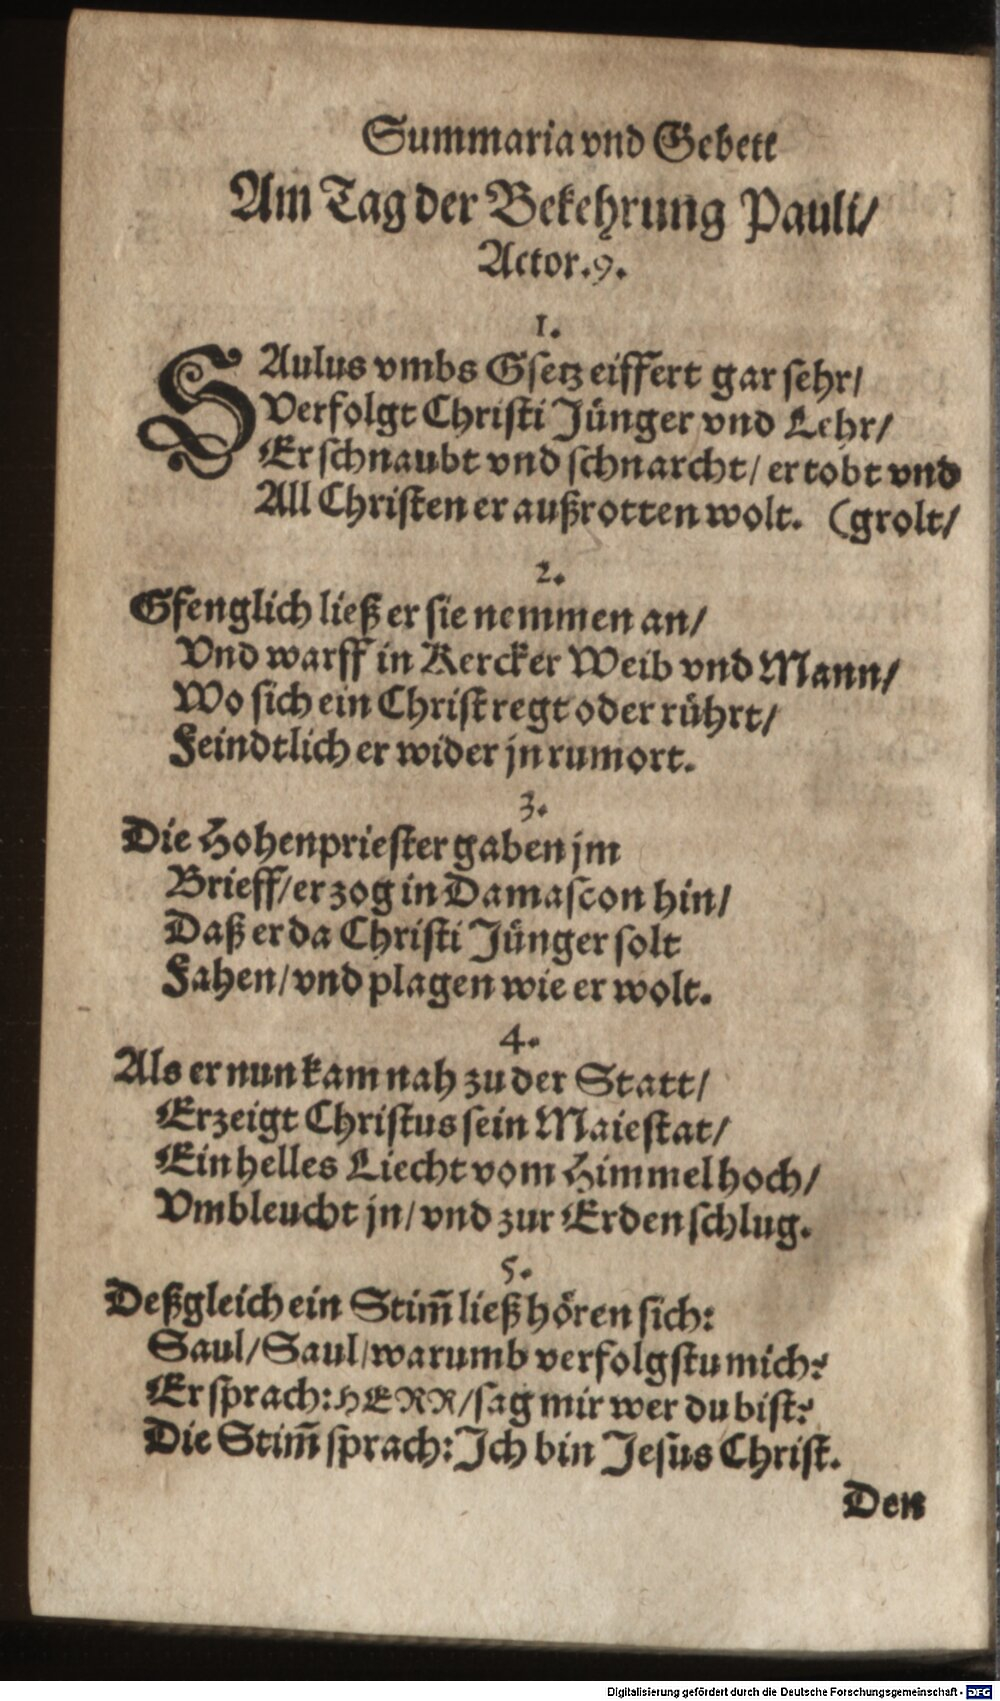 Summaria vnd Gebett
Am Tag der Bekehrung Pauli/
Actor.9.
1.
SAulus vmbs Gsetz eiffert gar sehr/
Verfolgt Christi Jünger vnd Lehr/
Er schnaubt vnd schnarcht/ er tobt vnd
All Christen er außrotten wolt. (grolt/
2.
Gfenglich ließ er sie nemmen an/
Vnd warff in Kercker Weib vnd Mann/
Wo sich ein Christ regt oder rührt/
Feindtlich er wider jn rumort.
3.
Die Hohenpriester gaben jm
Brieff/ er zog in Damascon hin/
Daß er da Christi Jünger solt
Fahen/ vnd plagen wie er wolt.
4.
Als er nun kam nah zu der Statt/
Erzeigt Christus sein Maiestat/
Ein helles Liecht vom Himmel hoch/
Vmbleucht jn/ vnd zur Erden schlug.
5.
Deßgleich ein Stim̄ ließ hören sich:
Saul/ Saul/ warumb verfolgstu mich?
Er sprach: HERR/ sag mir wer du bist?
Die Stim̄ sprach: Ich bin Jesus Christ.
Den
Digitalisierung gefördert durch die Deutsche Forschungsgemeinschaft - DFG